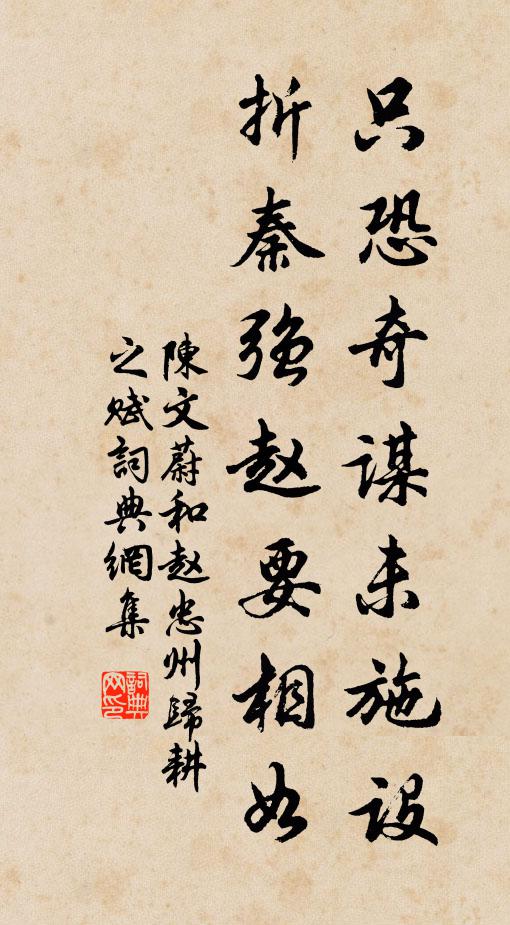 只恐奇謀未施設
折秦強赵要相如
陳文蔚和赵忠州歸耕
之赋詞典網集
詞典
网印